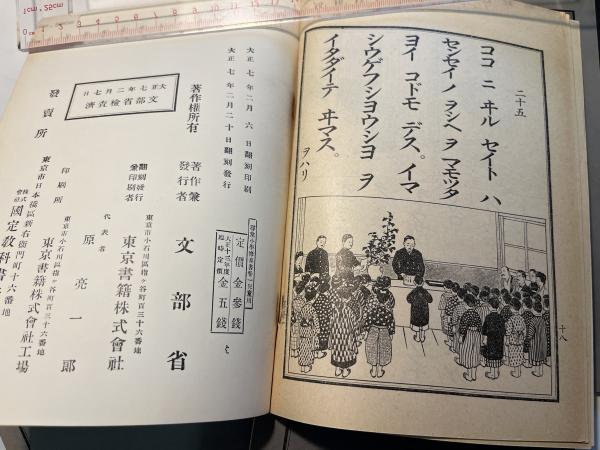 二十五
ココ ニ ヰル セイト ハ
センセイノ ヲシヘ ヲ マモッタ
ヨイ コドモ デス。イマ
シウゲフショウショ ヲ
イタダイテ ヰマス。
ヲハリ
十八
大正七年二月六日翻刻印刷
大正七年二月二十日翻刻發行
著作權所有
大正七年二月七日
文部省檢查濟
著作兼發行者
文部省
翻刻發行兼印刷者
東京市小石川區指ヶ谷町百三十六番地
東京書籍株式會社
代表者
原亮一郎
印刷所
東京市小石川區指ヶ谷町百三十六番地
東京書籍株式會社工場
發賣所
東京市日本橋區新右衛門町十六番地
株式會社
國定教科書
定價金參錢
大正十三年度臨時定價
金五錢